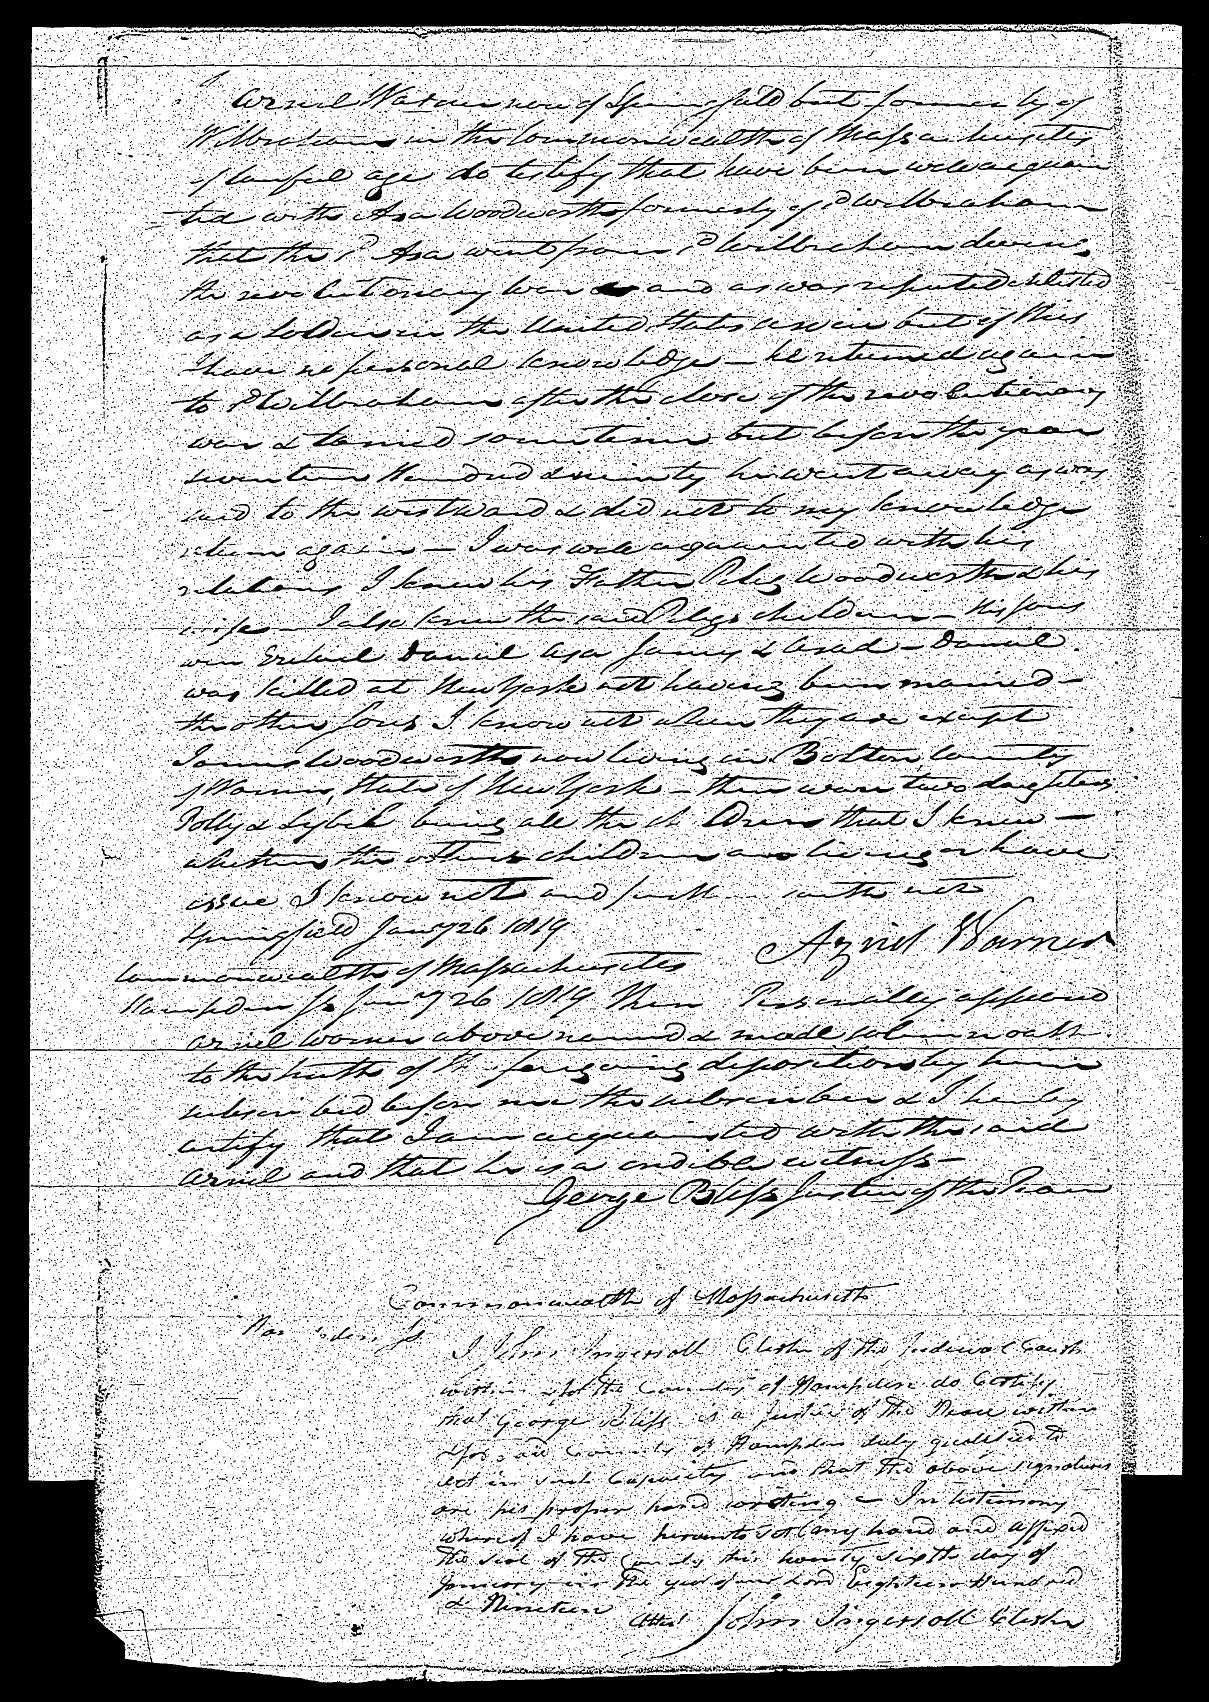 I Azriel Warner now of Springfield but formerly of
Wilbraham in the Commonwealth of Massachusetts
of lawful age do testify that have been well acquain
ted with Asa Woodworth formerly of sd Wilbraham
that the sd Asa went from sd Wilbraham during
the revolutionary war and as was reputed enlisted
as a soldier in the United States service but of this
I have no personal knowledge — he returned again
to sd Wilbraham after the close of the revolutionary
war & tarried sometime but before the year
seventeen Hundred & ninety he went away as was
said to the westward & did not to my knowledge
return again — I was well acquainted with his
relations I knew his Father Peleg Woodworth & his
wife — I also knew the said Pelegs children — His sons
were Ezekiel Daniel Asa James & Asael — Daniel
was killed at New York not having been married —
the other sons I know not where they are except
James Woodworth now living in Bolton County
of Warren, State of New York — there were two daughters
Polly & Sybil being all the children that I knew —
whether the other children are living or have
issue I know not and further saith not
Springfield Jany 26 1819
Azriel Warner
Commonwealth of Massachusetts
Hampden Ss Jany 26 1819 Then Personally appeared
Azriel Warner above named & made solemn oath
to the truth of the foregoing deposition by him
subscribed before me the subscriber & I hereby
certify that I am acquainted with the said
Azriel and that he is a credible witness —
George Bliss Justice of the Peace
Commonwealth of Massachusetts
Hampden Ss
I John Ingersoll Clerk of the Judicial Courts
within & for the County of Hampden do Certify
that George Bliss is a Justice of the Peace within
& for said County of Hampden duly qualified to
act in such Capacity and that the above signatures
are his proper hand writing — In testimony
whereof I have hereunto set my hand and affixed
the seal of the County this twenty sixth day of
January in the year of our Lord Eighteen Hundred
& Nineteen
Attest John Ingersoll Clerk